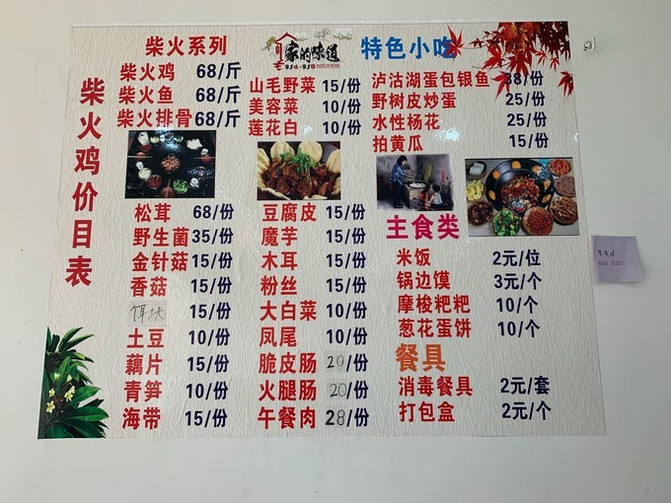 柴火鸡价目表
柴火系列
柴火鸡 68/斤
柴火鱼 68/斤
柴火排骨 68/斤
松茸 68/份
野生菌 35/份
金针菇 15/份
香菇 15/份
饵块 15/份
土豆 10/份
藕片 15/份
青笋 10/份
海带 15/份
家的味道
山毛野菜 15/份
美容菜 10/份
莲花白 10/份
豆腐皮 15/份
魔芋 15/份
木耳 15/份
粉丝 15/份
大白菜 10/份
凤尾 10/份
脆皮肠 20/份
火腿肠 20/份
午餐肉 28/份
特色小吃
泸沽湖蛋包银鱼 38/份
野树皮炒蛋 25/份
水性杨花 25/份
拍黄瓜 15/份
主食类
米饭 2元/位
锅边馍 3元/个
摩梭粑粑 10/个
葱花蛋饼 10/个
餐具
消毒餐具 2元/套
打包盒 2元/个